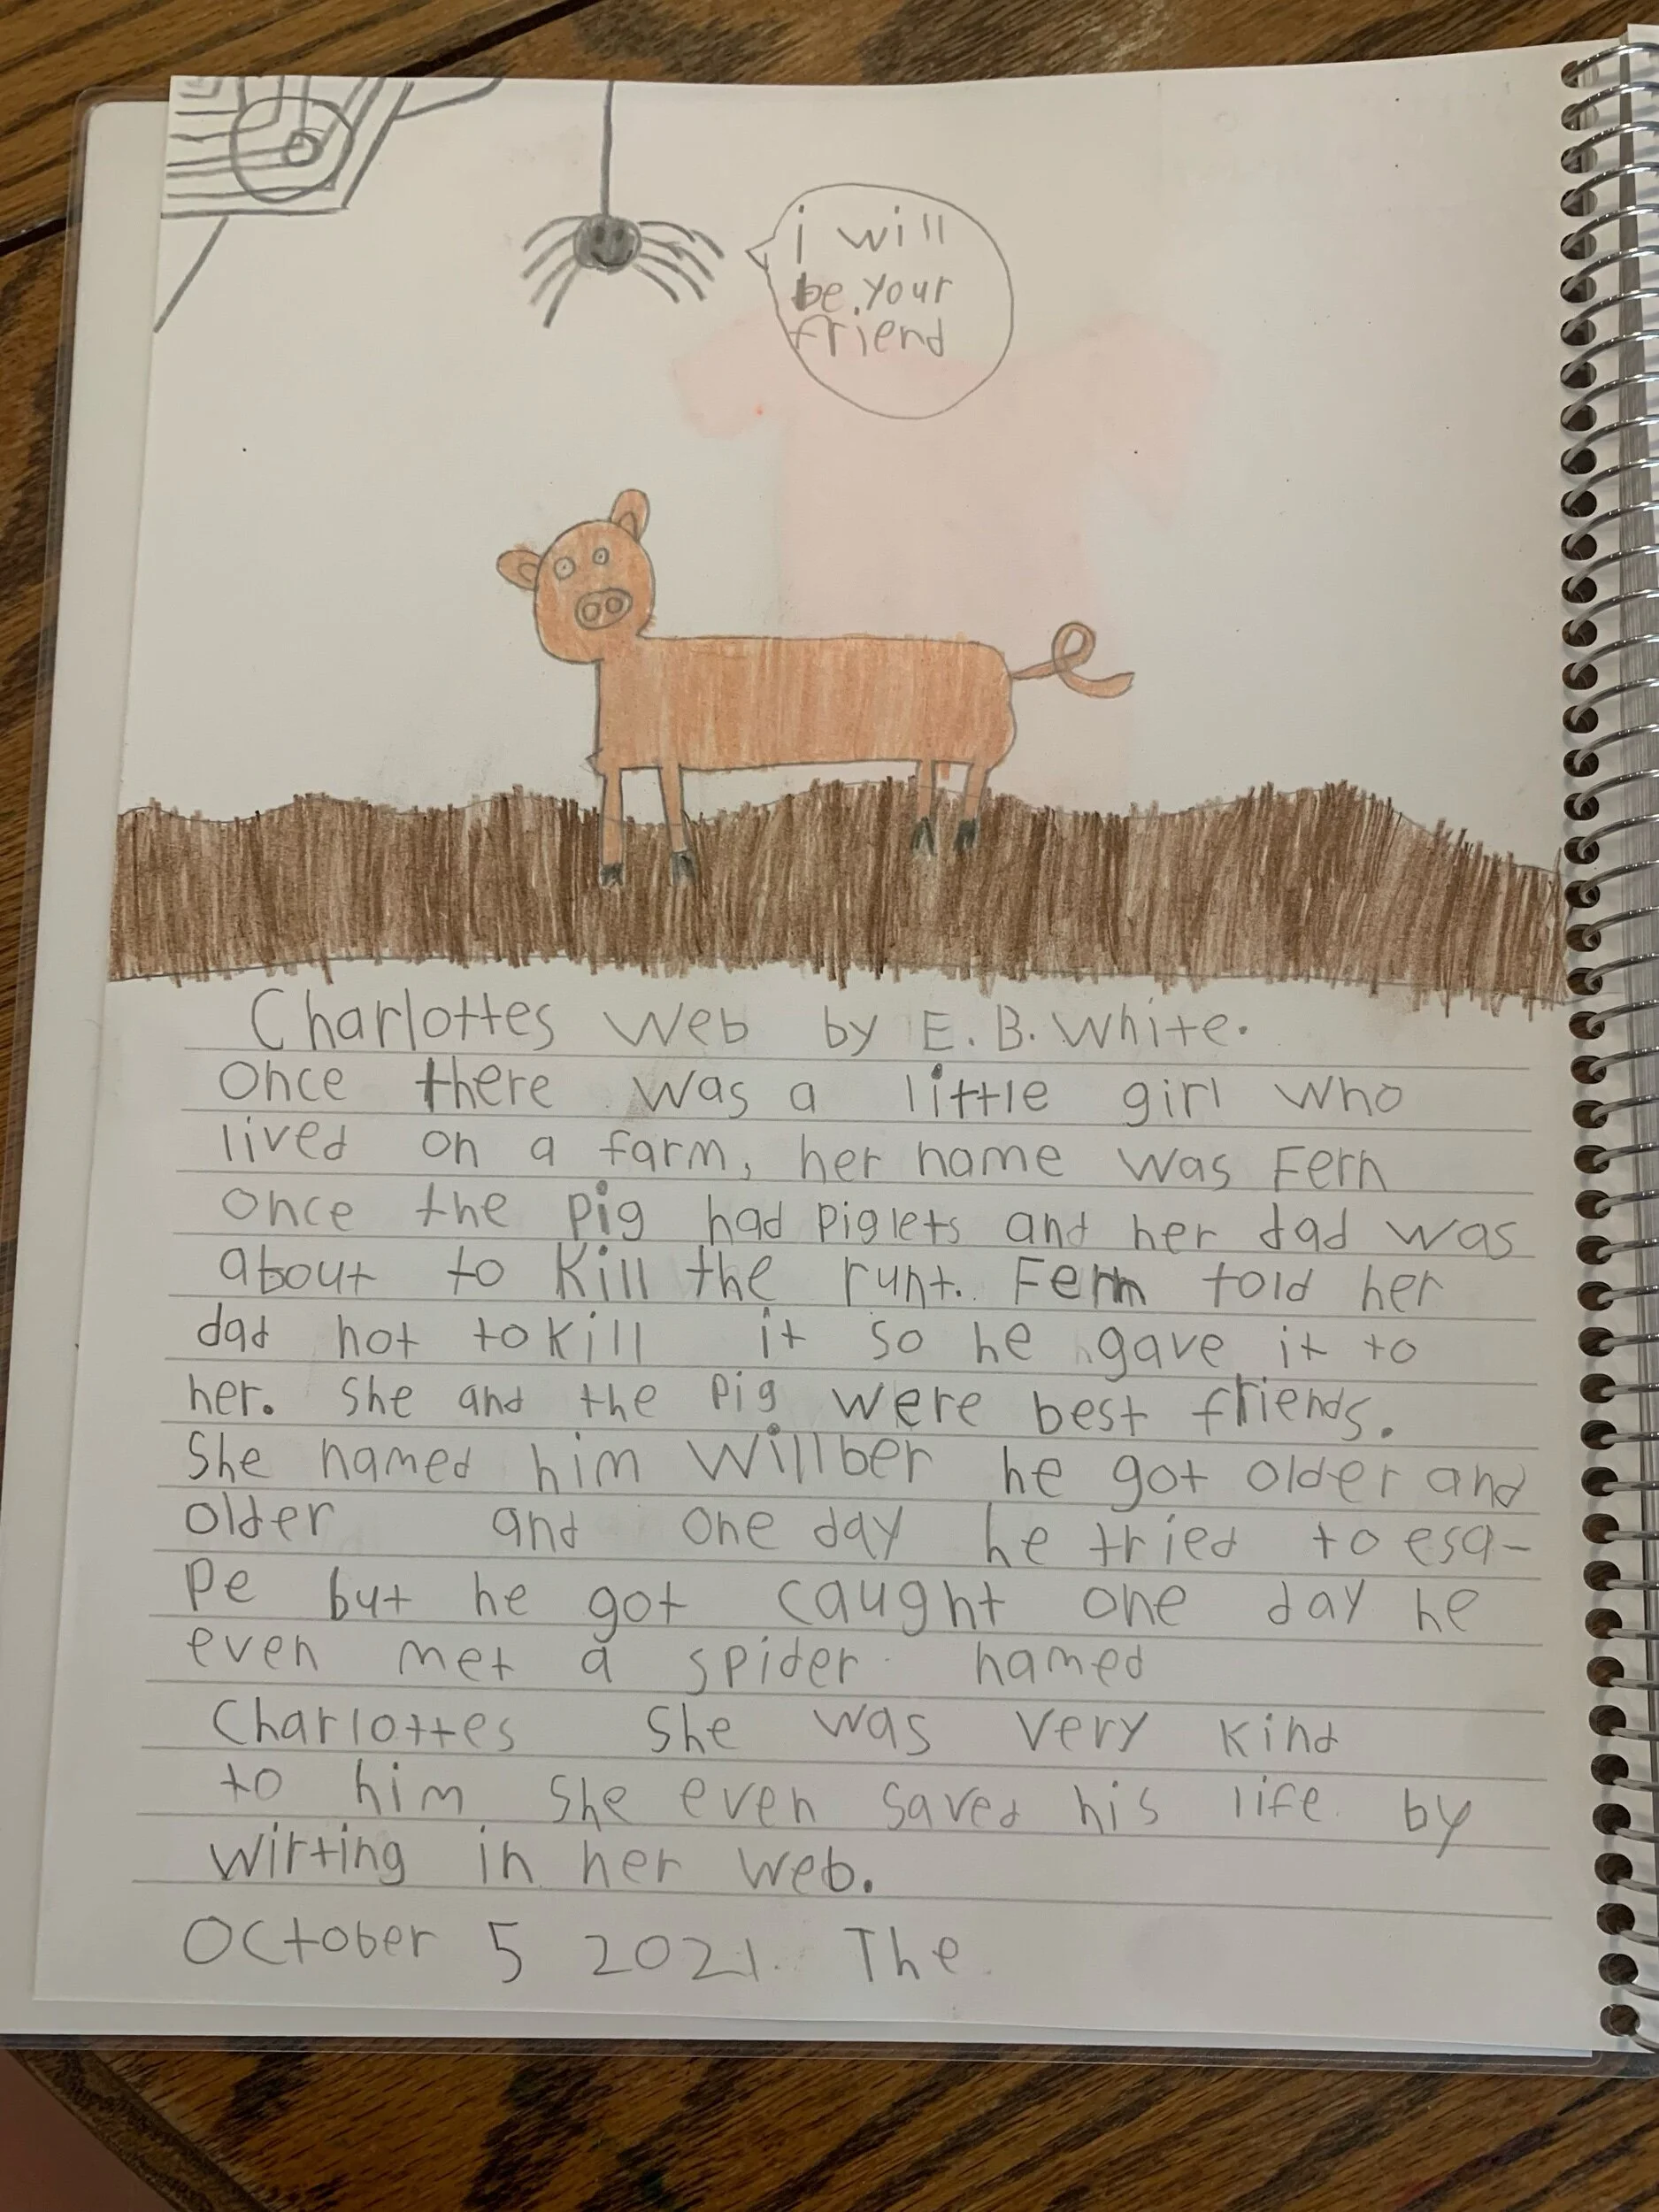 i will
be your
friend
Charlottes Web by E. B. White.
Once there was a little girl who
lived on a farm, her name was Fern
once the pig had piglets and her dad was
about to Kill the runt. Fern told her
dad not to kill it so he gave it to
her. She and the pig were best friends.
She named him Willber he got older and
older and one day he tried to esa-
pe but he got caught one day he
even met a spider named
Charlottes She was very kind
to him She even saved his life by
wirting in her web.
October 5 2021. The